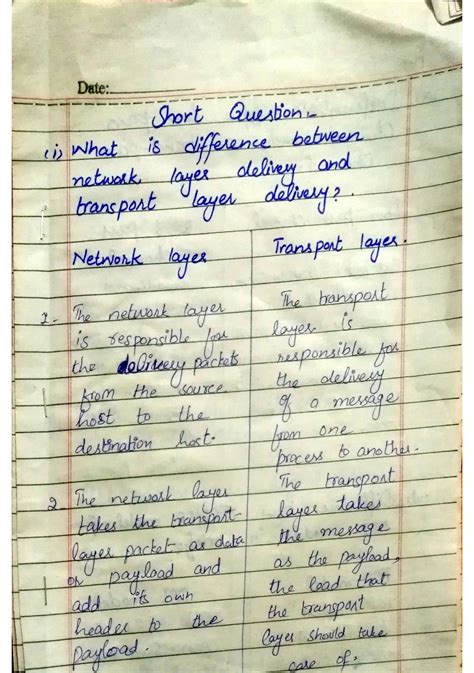 Date:
Short Question:-
(i) What is difference between
network layer delivery and
transport layer delivery?
Network layer
1- The network layer
is responsible for
the delivery packets
from the source
host to the
destination host.
2- The network layer
takes the transport
layer packet as data
or payload and
add its own
header to the
payload.
Transport layer.
The transport
layer is
responsible for
the delivery
of a message
from one
process to another.
The transport
layer takes
the message
as the payload,
the load that
the transport
layer should take
care of.